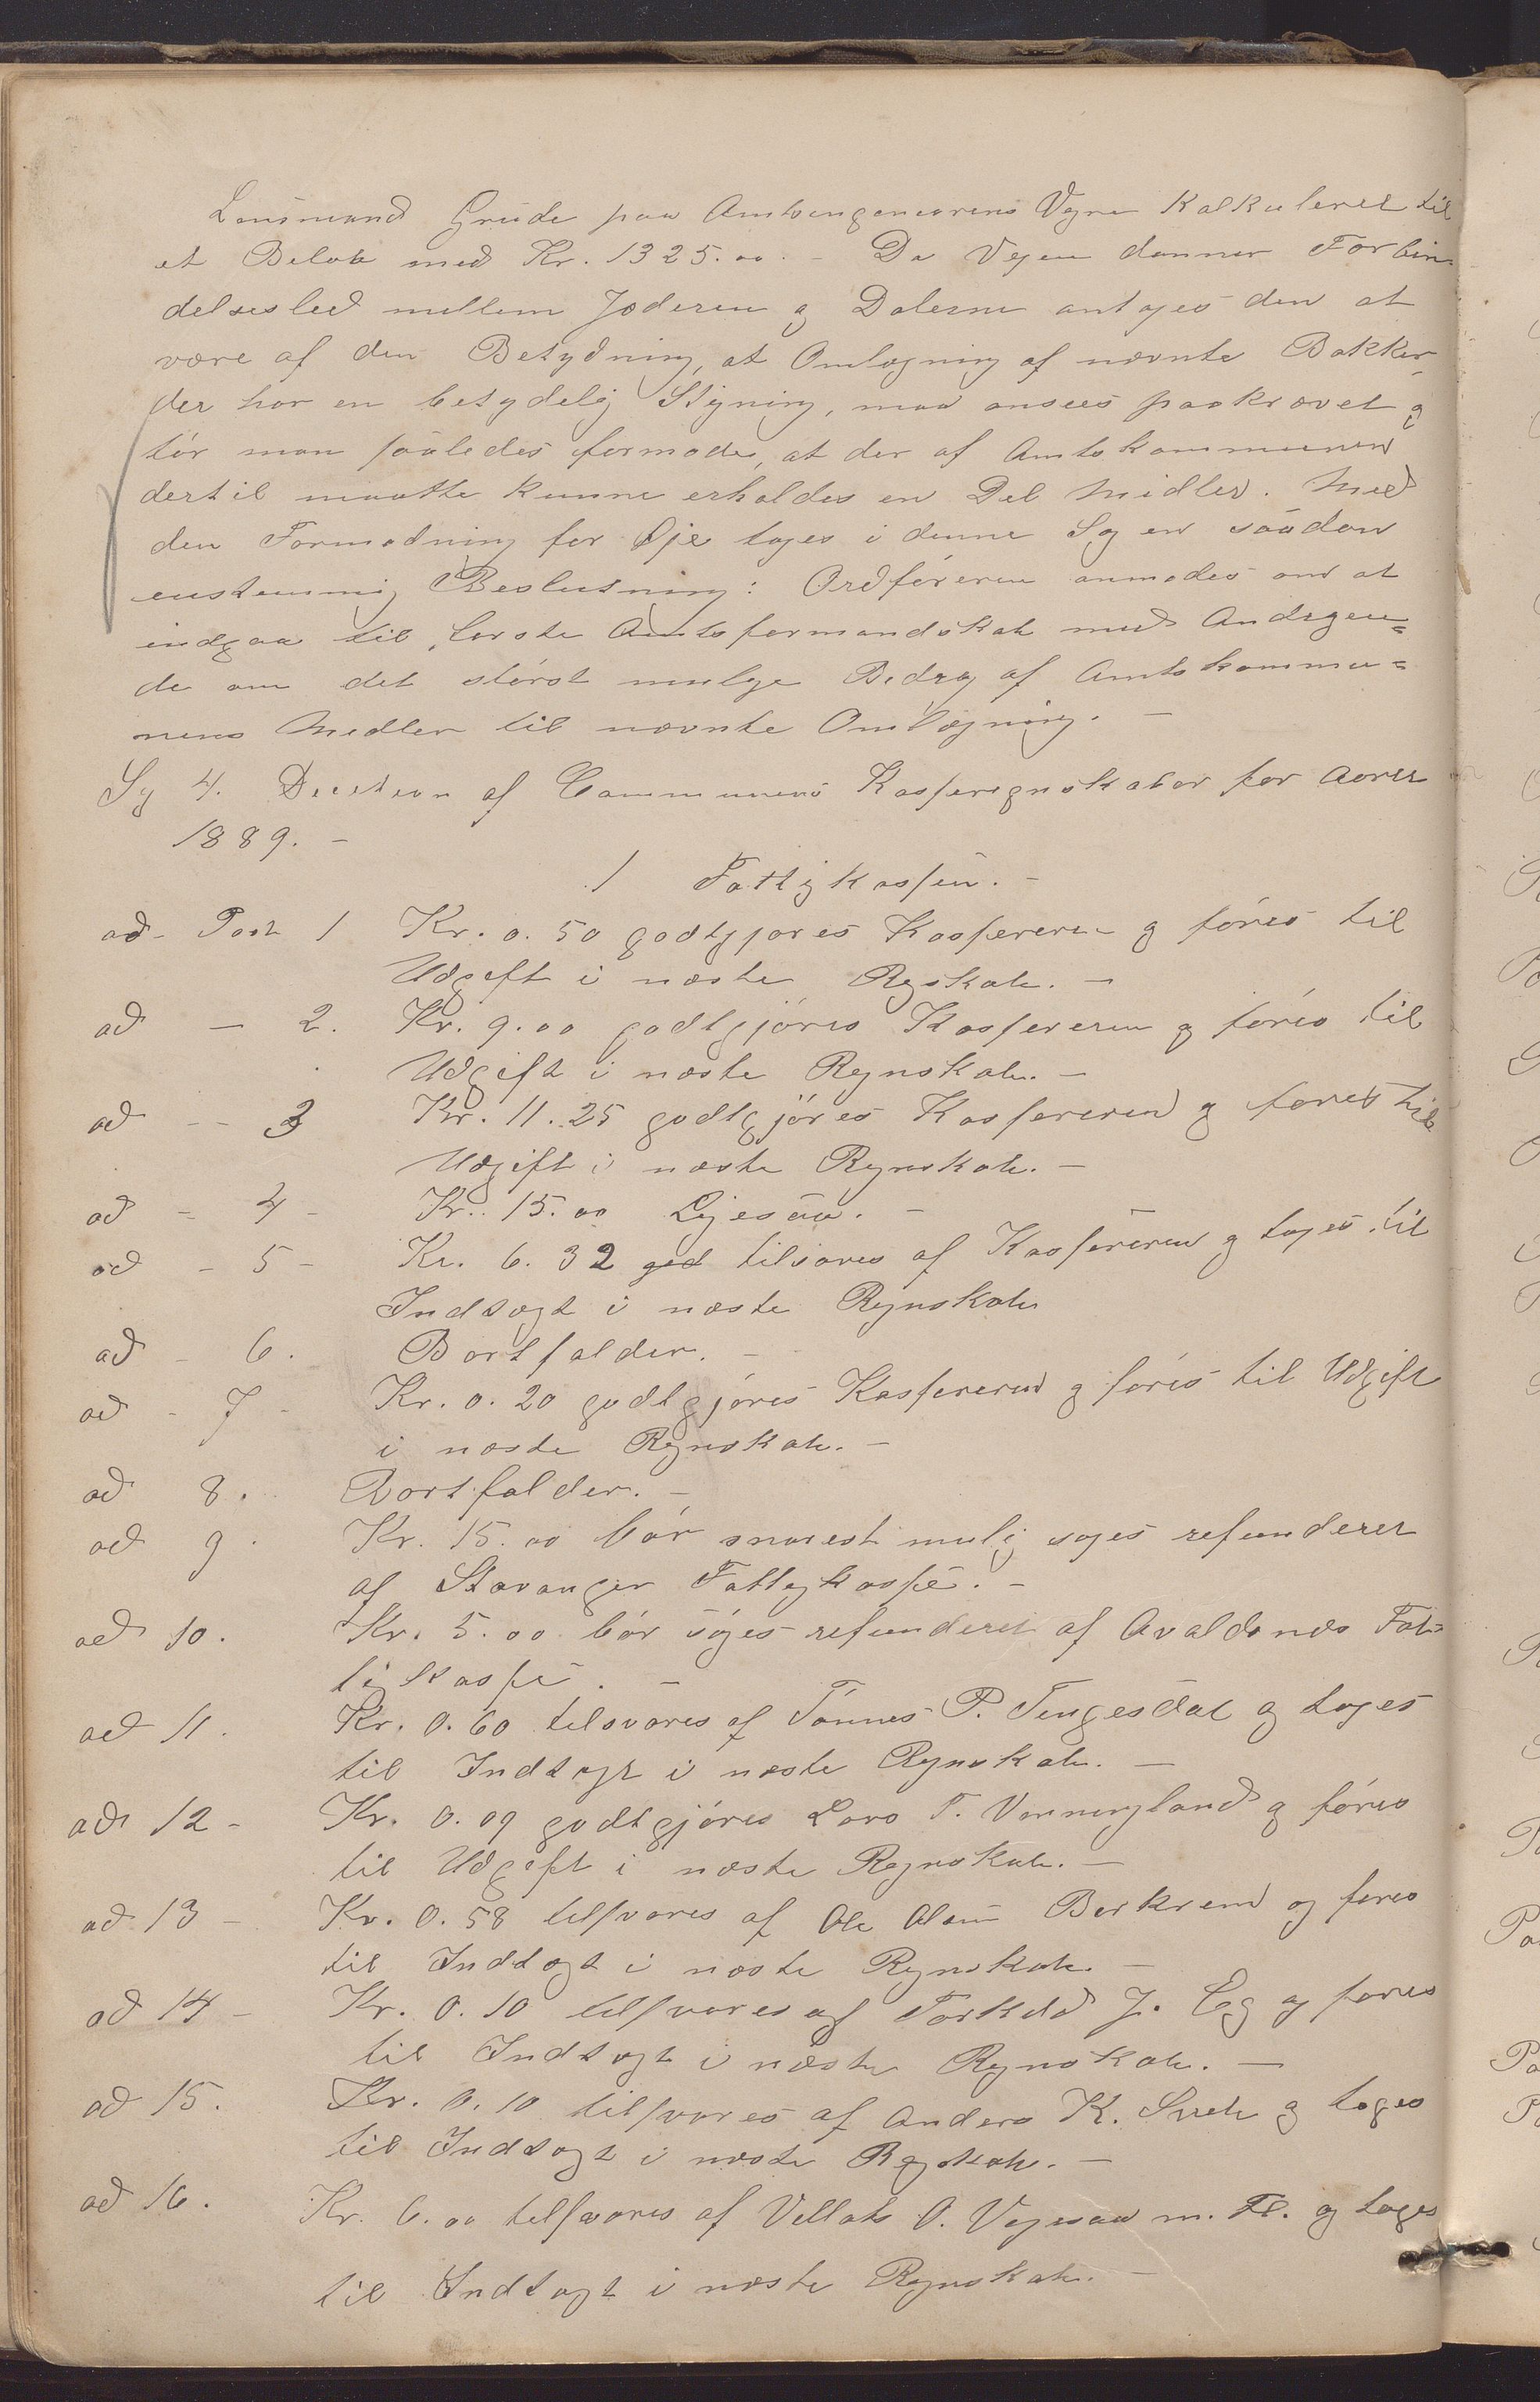 Lensmand Grude paa Amtsingeniørens Vegne kalkuleret til
et Beløb med Kr. 1325.00. - Da Vejen danner Forbin-
delsesled mellem Jæderen og Dalerne antages den at
være af den Betydning, at Omlægning af nævnte Bakker,
der har en betydelig Stigning, maa ansees paakrævet og
tør man saaledes formode, at der af Amtskommunen
dertil maatte kunne erholdes en Del Midler. Med
den Formodning for Øje toges i denne Sag en saadan
enstemmig Beslutning: Ordføreren anmodes om at
indgaa til første Amtsformandskab med Andragen=
de om det størst mulige Bidrag af Amtskommu=
nens Midler til nævnte Omlægning. -
Sag 4. Decision af Communens Kasseregnskaber for Aaret
1889. -
1 Fattigkassen. -
ad - Post 1 Kr. 0.50 godtgjøres Kassereren og føres til
Udgift i næste Regskab. -
ad - 2. Kr. 9.00 godtgjøres Kassereren og føres til
Udgift i næste Regnskab. -
ad - - 3 Kr. 11.25 godtgjøres Kassereren og føres til
Udgift i næste Regnskab. -
ad - 4 - Kr. 15.00 Ligesaa. -
ad - 5 - Kr. 6.32 god tilsvares af Kassereren og tages til
Indtægt i næste Regnskab
ad - 6. Bortfalder. -
ad - 7 - Kr. 0.20 godtgjøres Kassereren og føres til Udgift
i næste Regnskab. -
ad 8. Bortfalder. -
ad 9. Kr. 15.00 bør snarest mulig søges refunderet
af Stavanger Fattigkasse. -
ad 10. Kr. 5.00 bør søges refunderet af Avaldsnæs Fat-
tigkasse. -
ad 11. Kr. 0.60 tilsvares af Tønnes P. Tengesdal og tages
til Indtægt i næste Regnskab. -
ad 12 - Kr. 0.09 godtgjøres Lars T. Vanningland og føres
til Udgift i næste Regnskab. -
ad 13 - Kr. 0.58 tilsvares af Ole Olsen Berkrem og føres
til Indtægt i næste Regnskab. -
ad 14 - Kr. 0.10 tilsvares af Torkild J. Eg og føres
til Indtægt i næste Regnskab. -
ad 15. Kr. 0.10 tilsvares af Anders K. og tages
til Indtægt i næste Regskab. -
ad 16. Kr. 6.00 tilsvares af Vellats O. Vejesaa m. Fl. og tages
til Indtægt i næste Regnskab. -